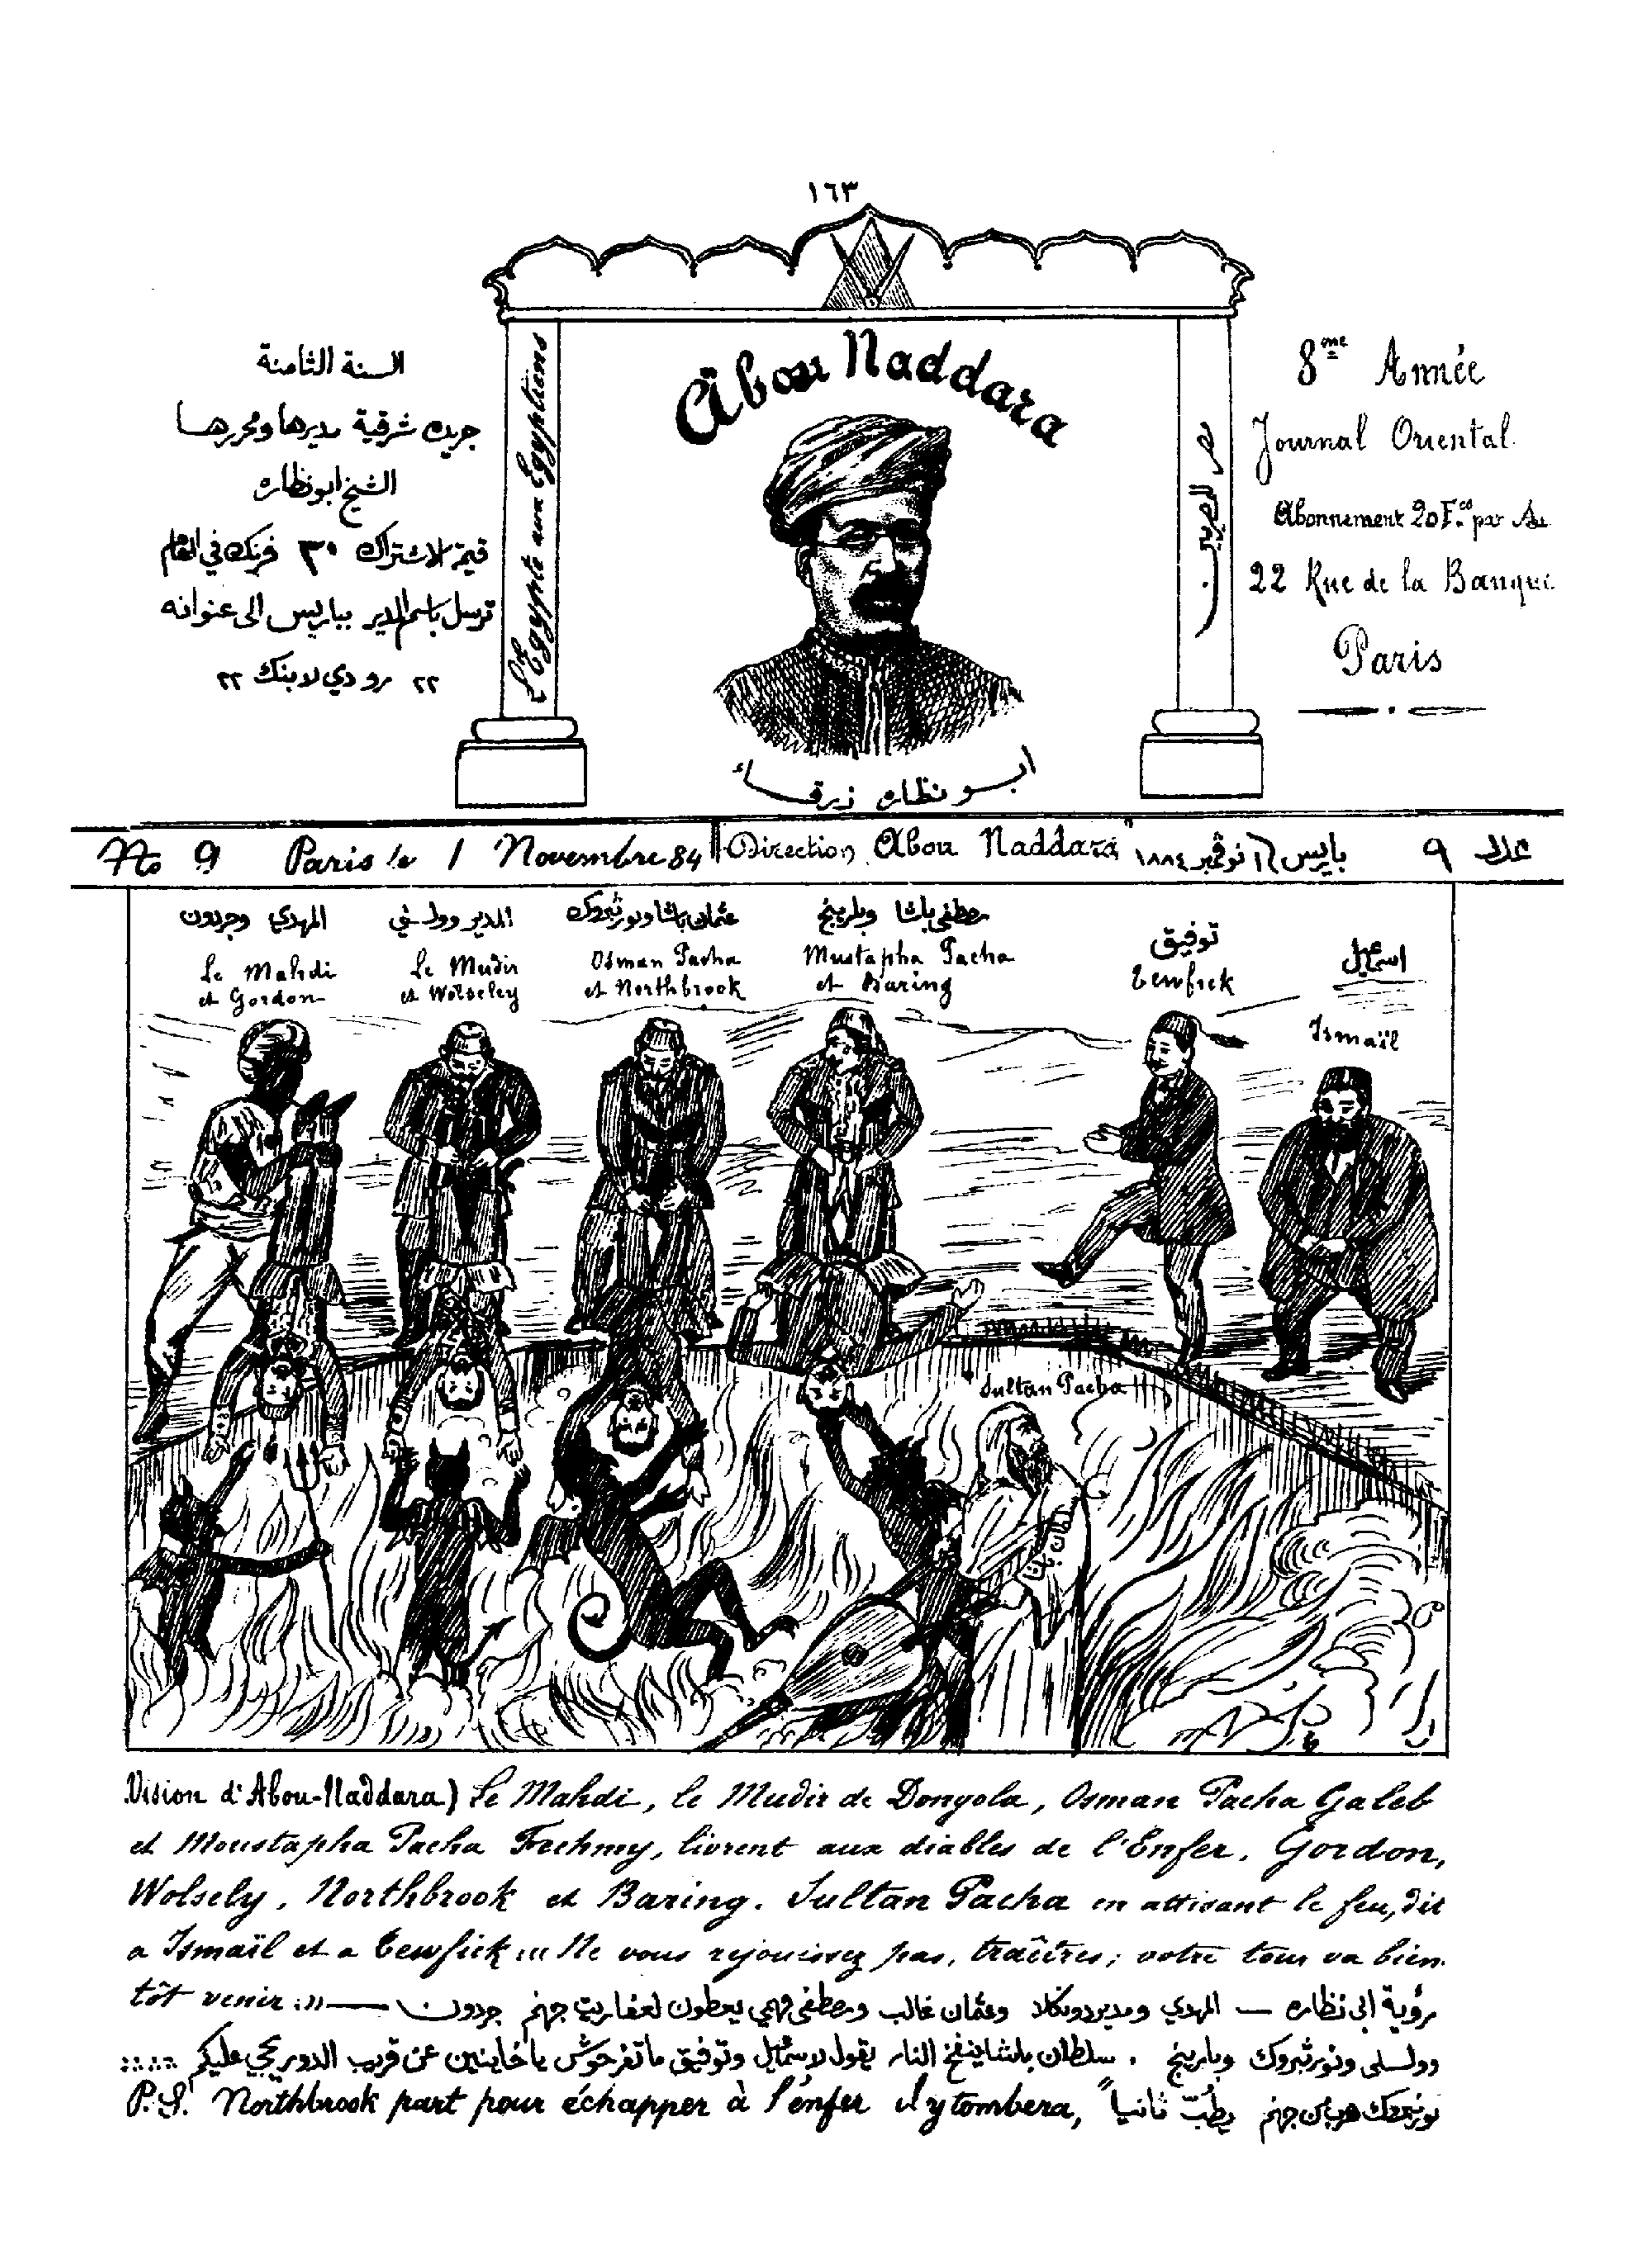 ١٦٣
Abou Naddara
L'Egypte aux Egyptiens
مصر للمصريين
ابو نظاره زرقا
السنة الثامنة
جريده شرقية مديرها ومحررها
الشيخ ابو نظاره
قيمة الاشتراك ٣٠ فرنك في العام
ترسل باسم المدير بباريس الى عنوانه
٢٢ رو دي لا بنك ٢٢
8me Année
Journal Oriental
Abonnement 20 F.cs par An
22 Rue de la Banque
Paris
No 9 Paris le 1 Novembre 84 Direction Abou Naddara باريس ١ نوڤمبر ١٨٨٤ عدد ٩
المهدي وجردون
Le Mahdi
et Gordon
المدير وولسلي
Le Mudir
et Wolseley
عثمان باشا ونورثبروك
Osman Pacha
et Northbrook
مصطفى باشا وبارينج
Mustapha Pacha
et Baring
توفيق
Tewfick
اسمعيل
Ismaïl
Sultan Pacha
Vision d'Abou-Naddara) Le Mahdi, le Mudir de Dongola, Osman Pacha Galeb
et Moustapha Pacha Fechmy, livrent aux diables de l'Enfer. Gordon,
Wolsely, Northbrook et Baring. Sultan Pacha en attisant le feu, dit
a Ismaïl et a Tewfick: «Ne vous rejouissez pas, traîtres; votre tour va bien
tôt venir:» — رؤية ابي نظاره — المهدي ومدير دونكلا وعثمان غالب ومصطفى فهمي يعطون لعفاريت جهنم جردون
وولسلي ونورثبروك وبارينج . سلطان باشا ينفخ النار يقول لاسمعيل وتوفيق ما تفرحوش يا خاينين عن قريب الدور يجي عليكم
P.S. Northbrook part pour échapper à l'enfer il y tombera, نورثبروك هرب من جهنم يطب ثانيا